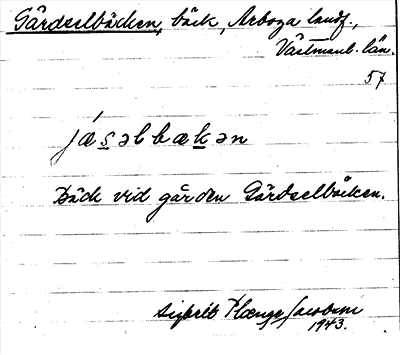 Gärdselbäcken, bäck, Arboga landf.,
Västmanl. län.
57
jæsəlbækən
Bäck vid gården Gärdselbäcken.
Sigbrit Plænge Jacobson
1943.